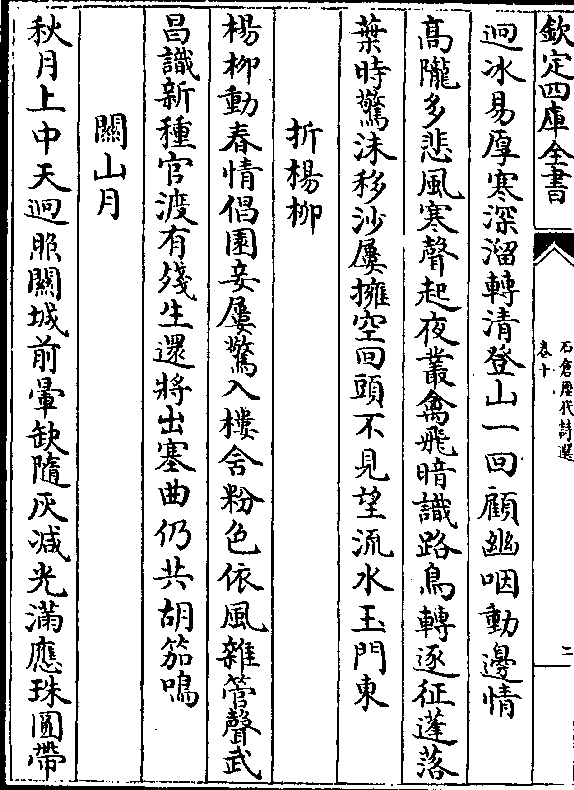 欽定四庫全書
石倉歷代詩選
卷十
二
迥冰易厚寒深溜轉清登山一回顧幽咽動邊情
高隴多悲風寒聲起夜叢禽飛暗識路鳥轉逐征蓬落
葉時驚沫移沙屢擁空回頭不見望流水玉門東
折楊柳
楊柳動春情倡園妾屢驚入樓含粉色依風雜管聲武
昌識新種官渡有殘生還將出塞曲仍共胡笳鳴
關山月
秋月上中天迥照關城前暈缺隨灰減光滿應珠圓帶